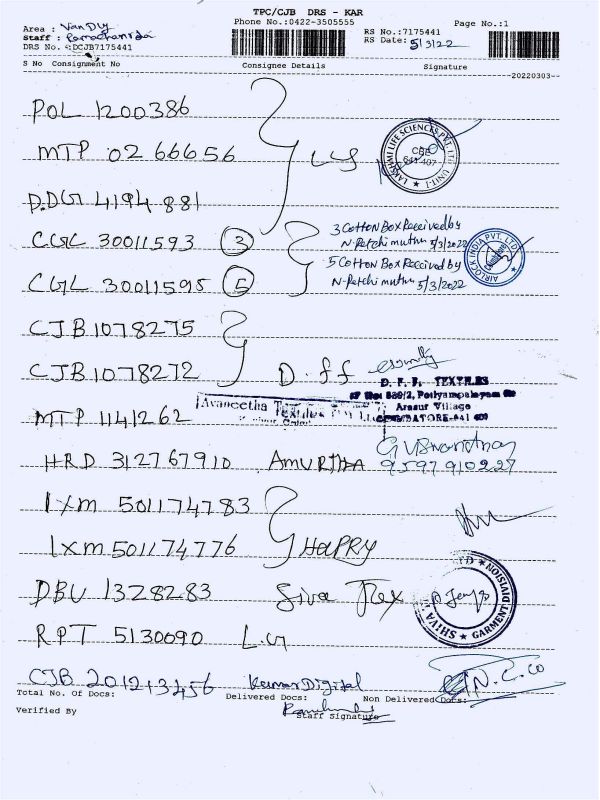 TPC/CJB DRS - KAR
Phone No.:0422-3505555
Page No.:1
Area : Van Dly
Staff :
DRS No. :DCJB7175441
RS No.:7175441
RS Date: 5/3/22
S No Consignment No Consignee Details Signature
20220303
POL 1200386
MTP 02 66656
D.DG 4194881
LAKSHMI LIFE SCIENCES PVT LTD UNIT-I
CBE 641 407
CGL 30011593 ③ 3 Cotton Box Received by
N-Petchimuthu 5/3/2022
AIRLOCK INDIA PVT. LTD
CGL 30011595 ⑤ 5 Cotton Box Received by
N-Petchimuthu 5/3/2022
CJB 1078275
CJB 1078272 D.ff
D. F. F. TEXTILES
Arasur Village
COIMBATORE-641 407
Avaneetha Textiles PVT LTD
MTP 1141262
HRD 312767910 AMURTHA
9597910227
1xm 501174783
1xm 501174776 HAPPY
DBU 1328283 Siva Tex
SHIVA GARMENT DIVISION
RPT 5130090 L.G
CJB 201213456 Kumar Digital N.C.CO
Total No. Of Docs: Delivered Docs: Non Delivered Docs:
Verified By Staff Signature